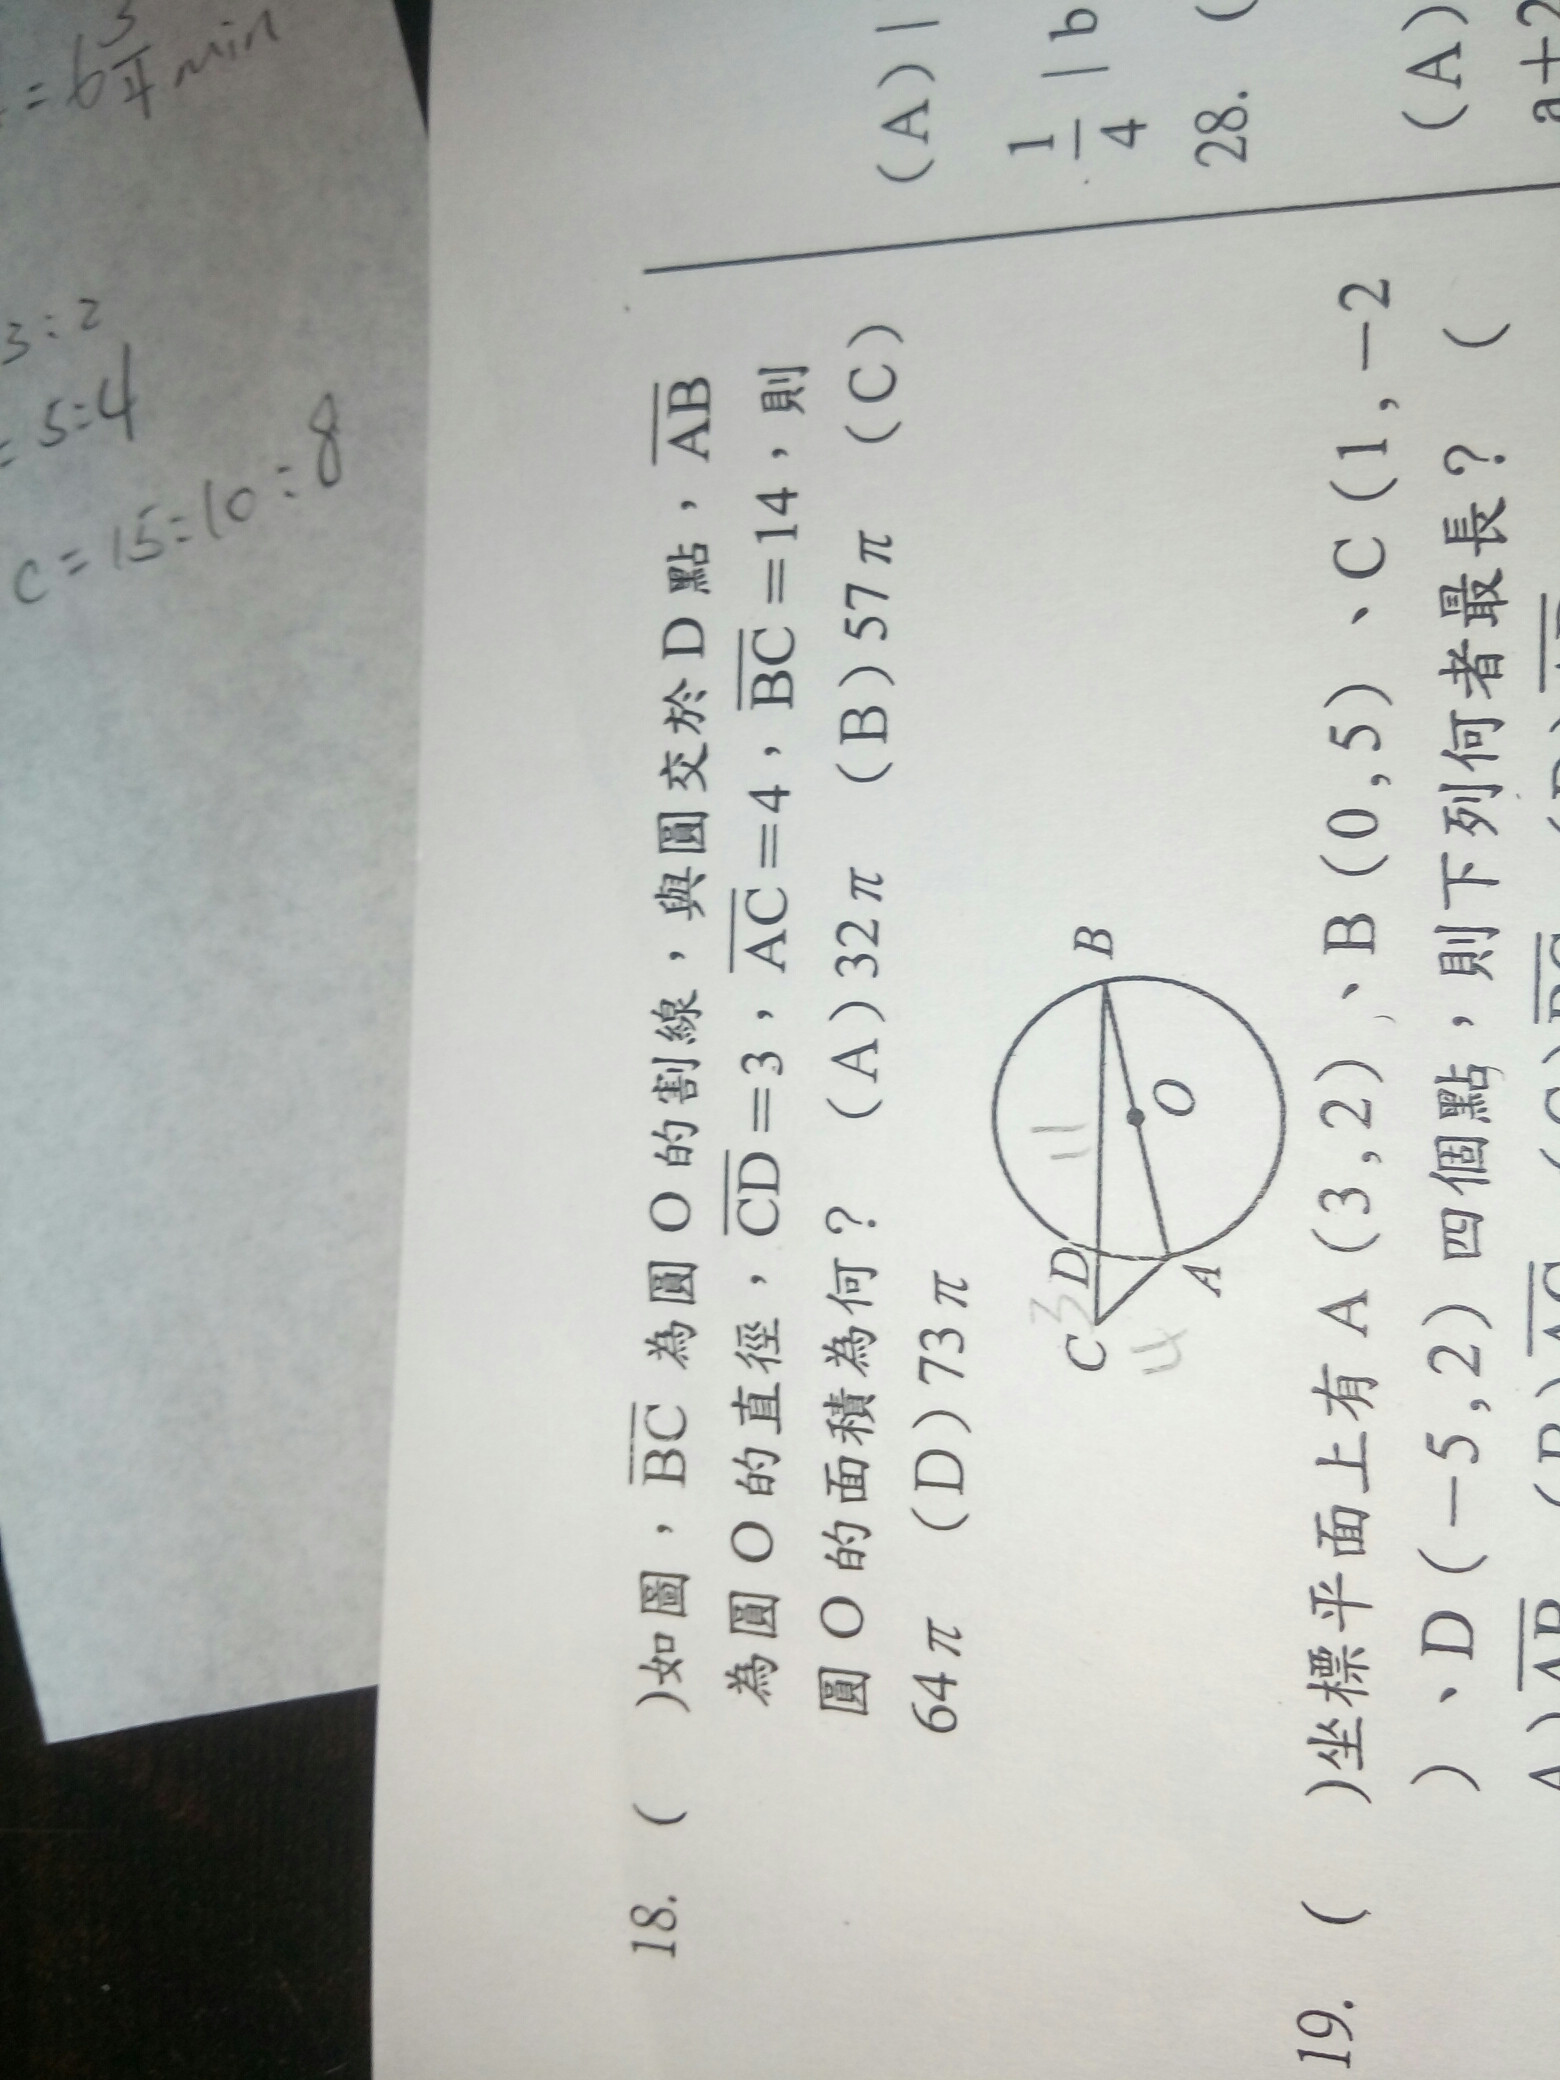 = 6 3/4 min
3:2
= 5:4
C = 15:10:8
18. ( )如圖，BC 為圓 O 的割線，與圓交於 D 點，AB
為圓 O 的直徑，CD＝3，AC＝4，BC＝14，則
圓 O 的面積為何？ (A)32π (B)57π (C)
64π (D)73π
C 3 D 11 B
4 A O
19. ( )坐標平面上有 A(3,2)、B(0,5)、C(1,-2
)、D(-5,2)四個點，則下列何者最長？ (
(A) |
1/4 | b
28. (
(A)
a+2